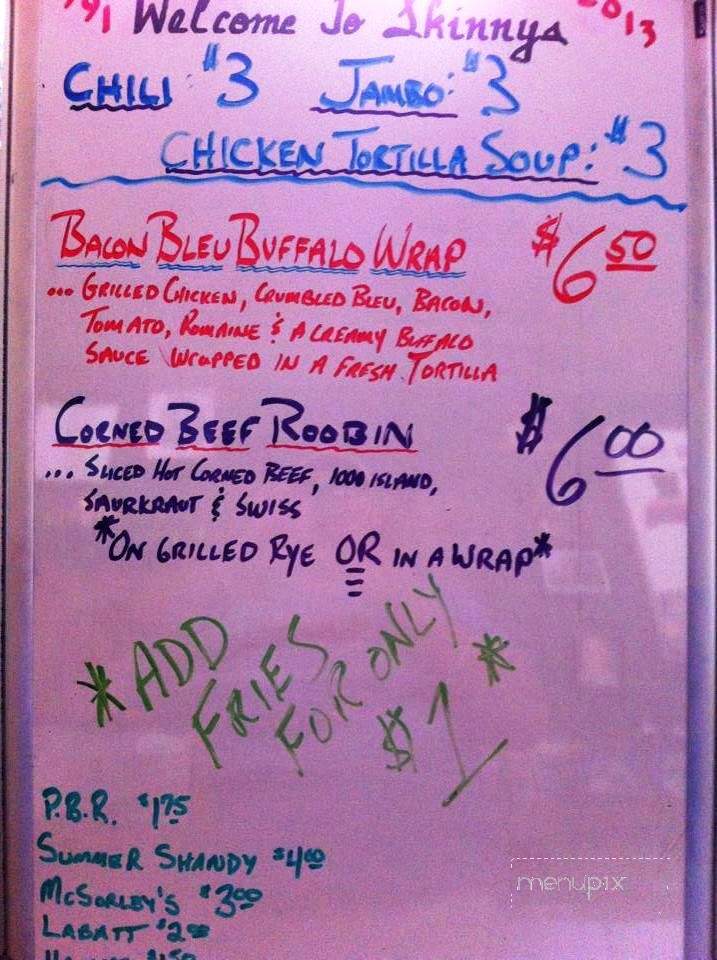 '91 Welcome To Skinnys 2013
CHILI: $3 JAMBO: $3
CHICKEN TORTILLA SOUP: $3
BACON BLEU BUFFALO WRAP $6 50
... GRILLED CHICKEN, CRUMBLED BLEU, BACON,
TOMATO, ROMAINE & A CREAMY BUFFALO
SAUCE WRAPPED IN A FRESH TORTILLA
CORNED BEEF ROOBIN $6 00
... SLICED HOT CORNED BEEF, 1000 ISLAND,
SAURKRAUT & SWISS
*ON GRILLED RYE OR IN A WRAP*
*ADD
FRIES
FOR ONLY
$1 *
P.B.R. $1 75
SUMMER SHANDY $4 00
McSORLEY'S $3 00
LABATT $2 00
menupix